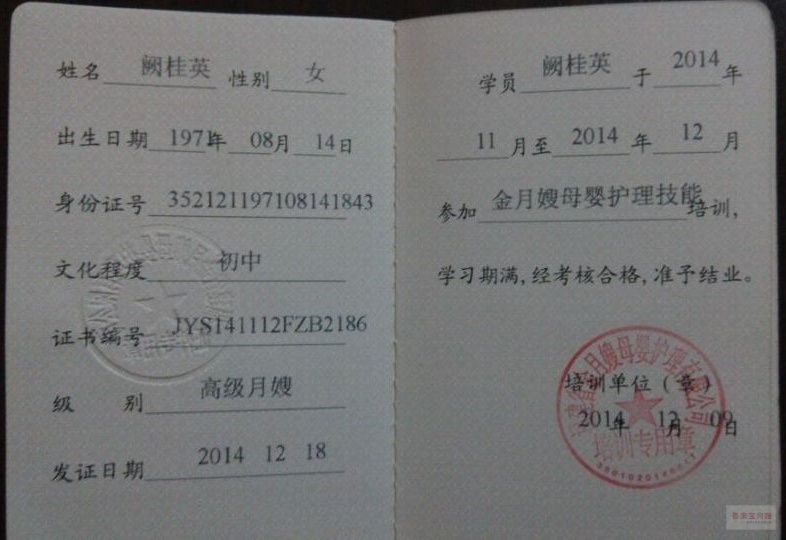 姓名 阙桂英 性别 女
出生日期 1971年 08月 14日
身份证号 352121197108141843
文化程度 初中
证书编号 JYS141112FZB2186
级 别 高级月嫂
发证日期 2014 12 18
学员 阙桂英 于 2014 年
11 月至 2014 年 12 月
参加 金月嫂母婴护理技能培训,
学习期满,经考核合格,准予结业。
培训单位(章)
2014年 12月 09日
月嫂母婴护理有限公司
培训专用章